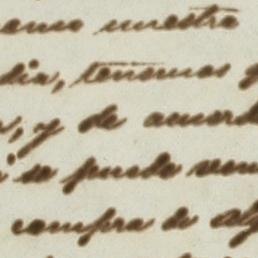 como nuestra
dia, tenemos
, y de acuerd
si se puede ven
compra de alg